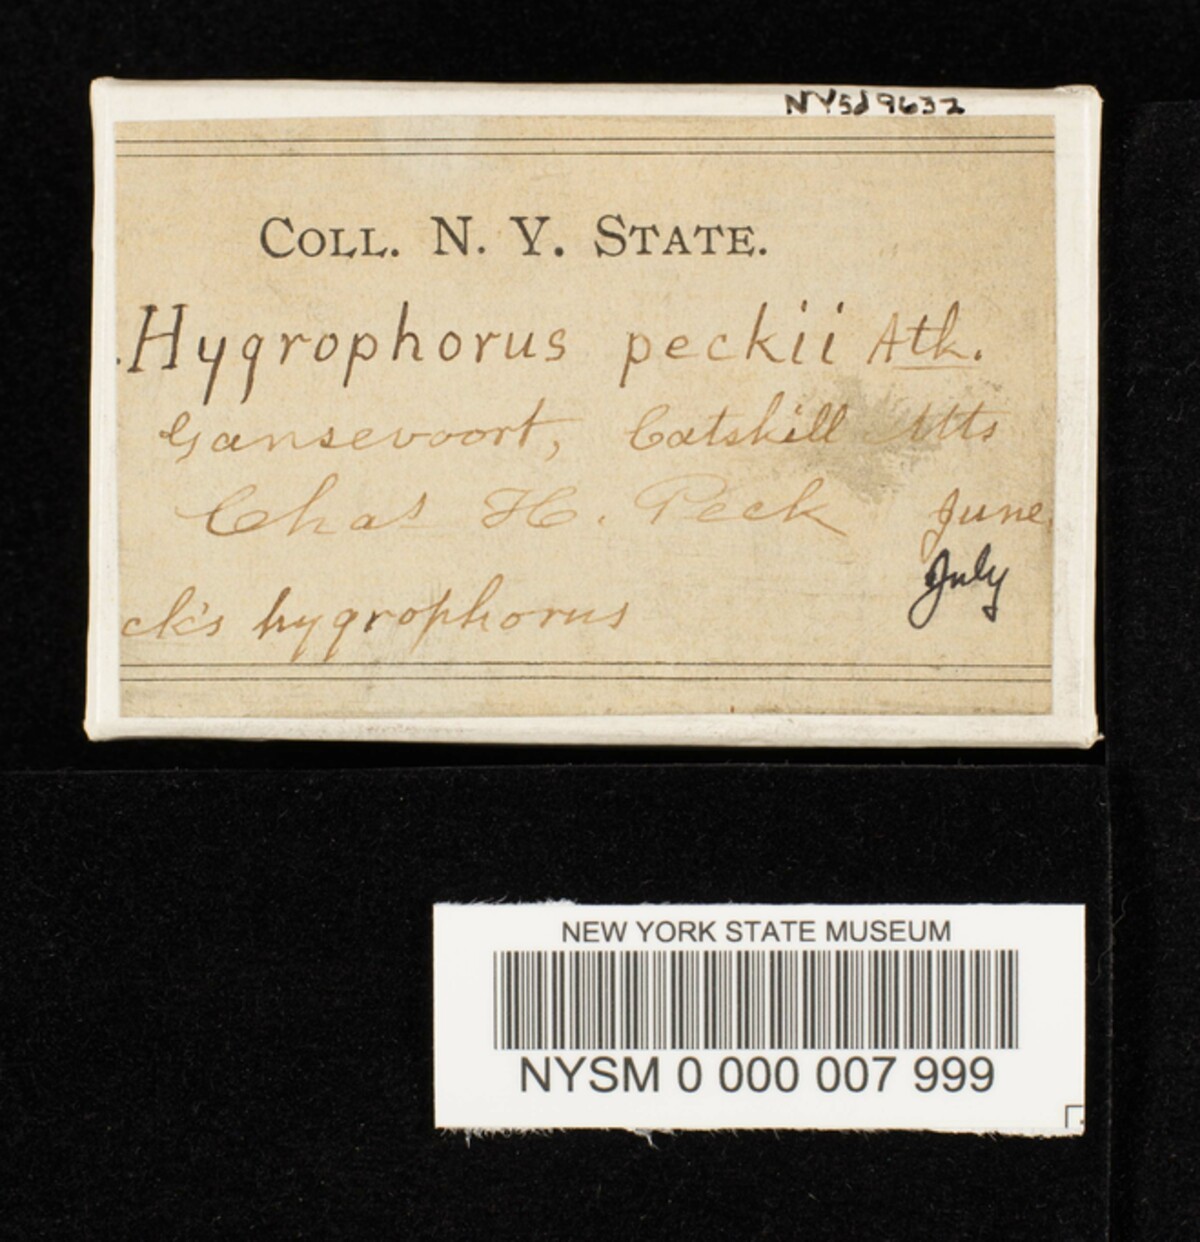 NYSd9632
COLL. N. Y. STATE.
Hygrophorus peckii Atk.
Gansevoort, Catskill Mts
Chas H. Peck June
July
ck's hygrophorus
NEW YORK STATE MUSEUM
NYSM 0 000 007 999